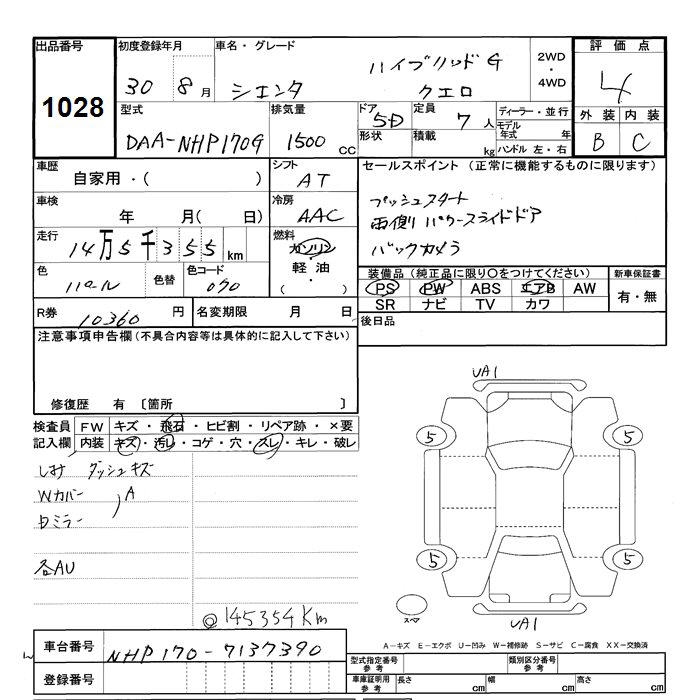 出品番号 1028
初度登録年月 30 8月
車名・グレード シエンタ ハイブリッドG クエロ
2WD・4WD
評価点 4
外装 内装
B C
型式 DAA-NHP170G
排気量 1500 CC
ドア 5D
形状
定員 7人
積載 kg
ディーラー・並行
モデル年式 年
ハンドル 左・右
車歴 自家用・( )
シフト AT
車検 年 月( 日)
冷房 AAC
走行 14万5千355km
燃料 ガソリン・軽油・( )
色 パール 色替
色コード 070
R券 10360円
名変期限 月 日
セールスポイント (正常に機能するものに限ります)
プッシュスタート
両側パワースライドドア
バックカメラ
装備品(純正品に限り○をつけてください)
PS PW ABS エアB AW
SR ナビ TV カワ
新車保証書
有・無
後日品
注意事項申告欄(不具合内容等は具体的に記入して下さい)
修復歴 有 〔箇所 〕
検査員記入欄
FW キズ・飛石・ヒビ割・リペア跡・×要
内装 キズ・汚レ・コゲ・穴・スレ・キレ・破レ
シミ ダッシュキズ
Wカバー A
ミラー
各AU
◎145354Km
UA1
5 5
5 5
スペア
UA1
A-キズ E-エクボ U-凹み W-補修跡 S-サビ C-腐食 XX-交換済
車台番号 NHP170-7137390
登録番号
型式指定番号 参考
類別区分番号 参考
車庫証明用 参考
長さ cm 幅 cm 高さ cm